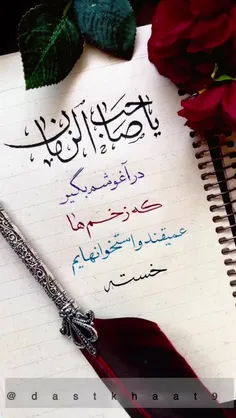 یا صاحب الزمان
در آغوشم بگیر
که زخم‌ها
عمیقند و استخوانهایم
خسته
@dastkhaat9